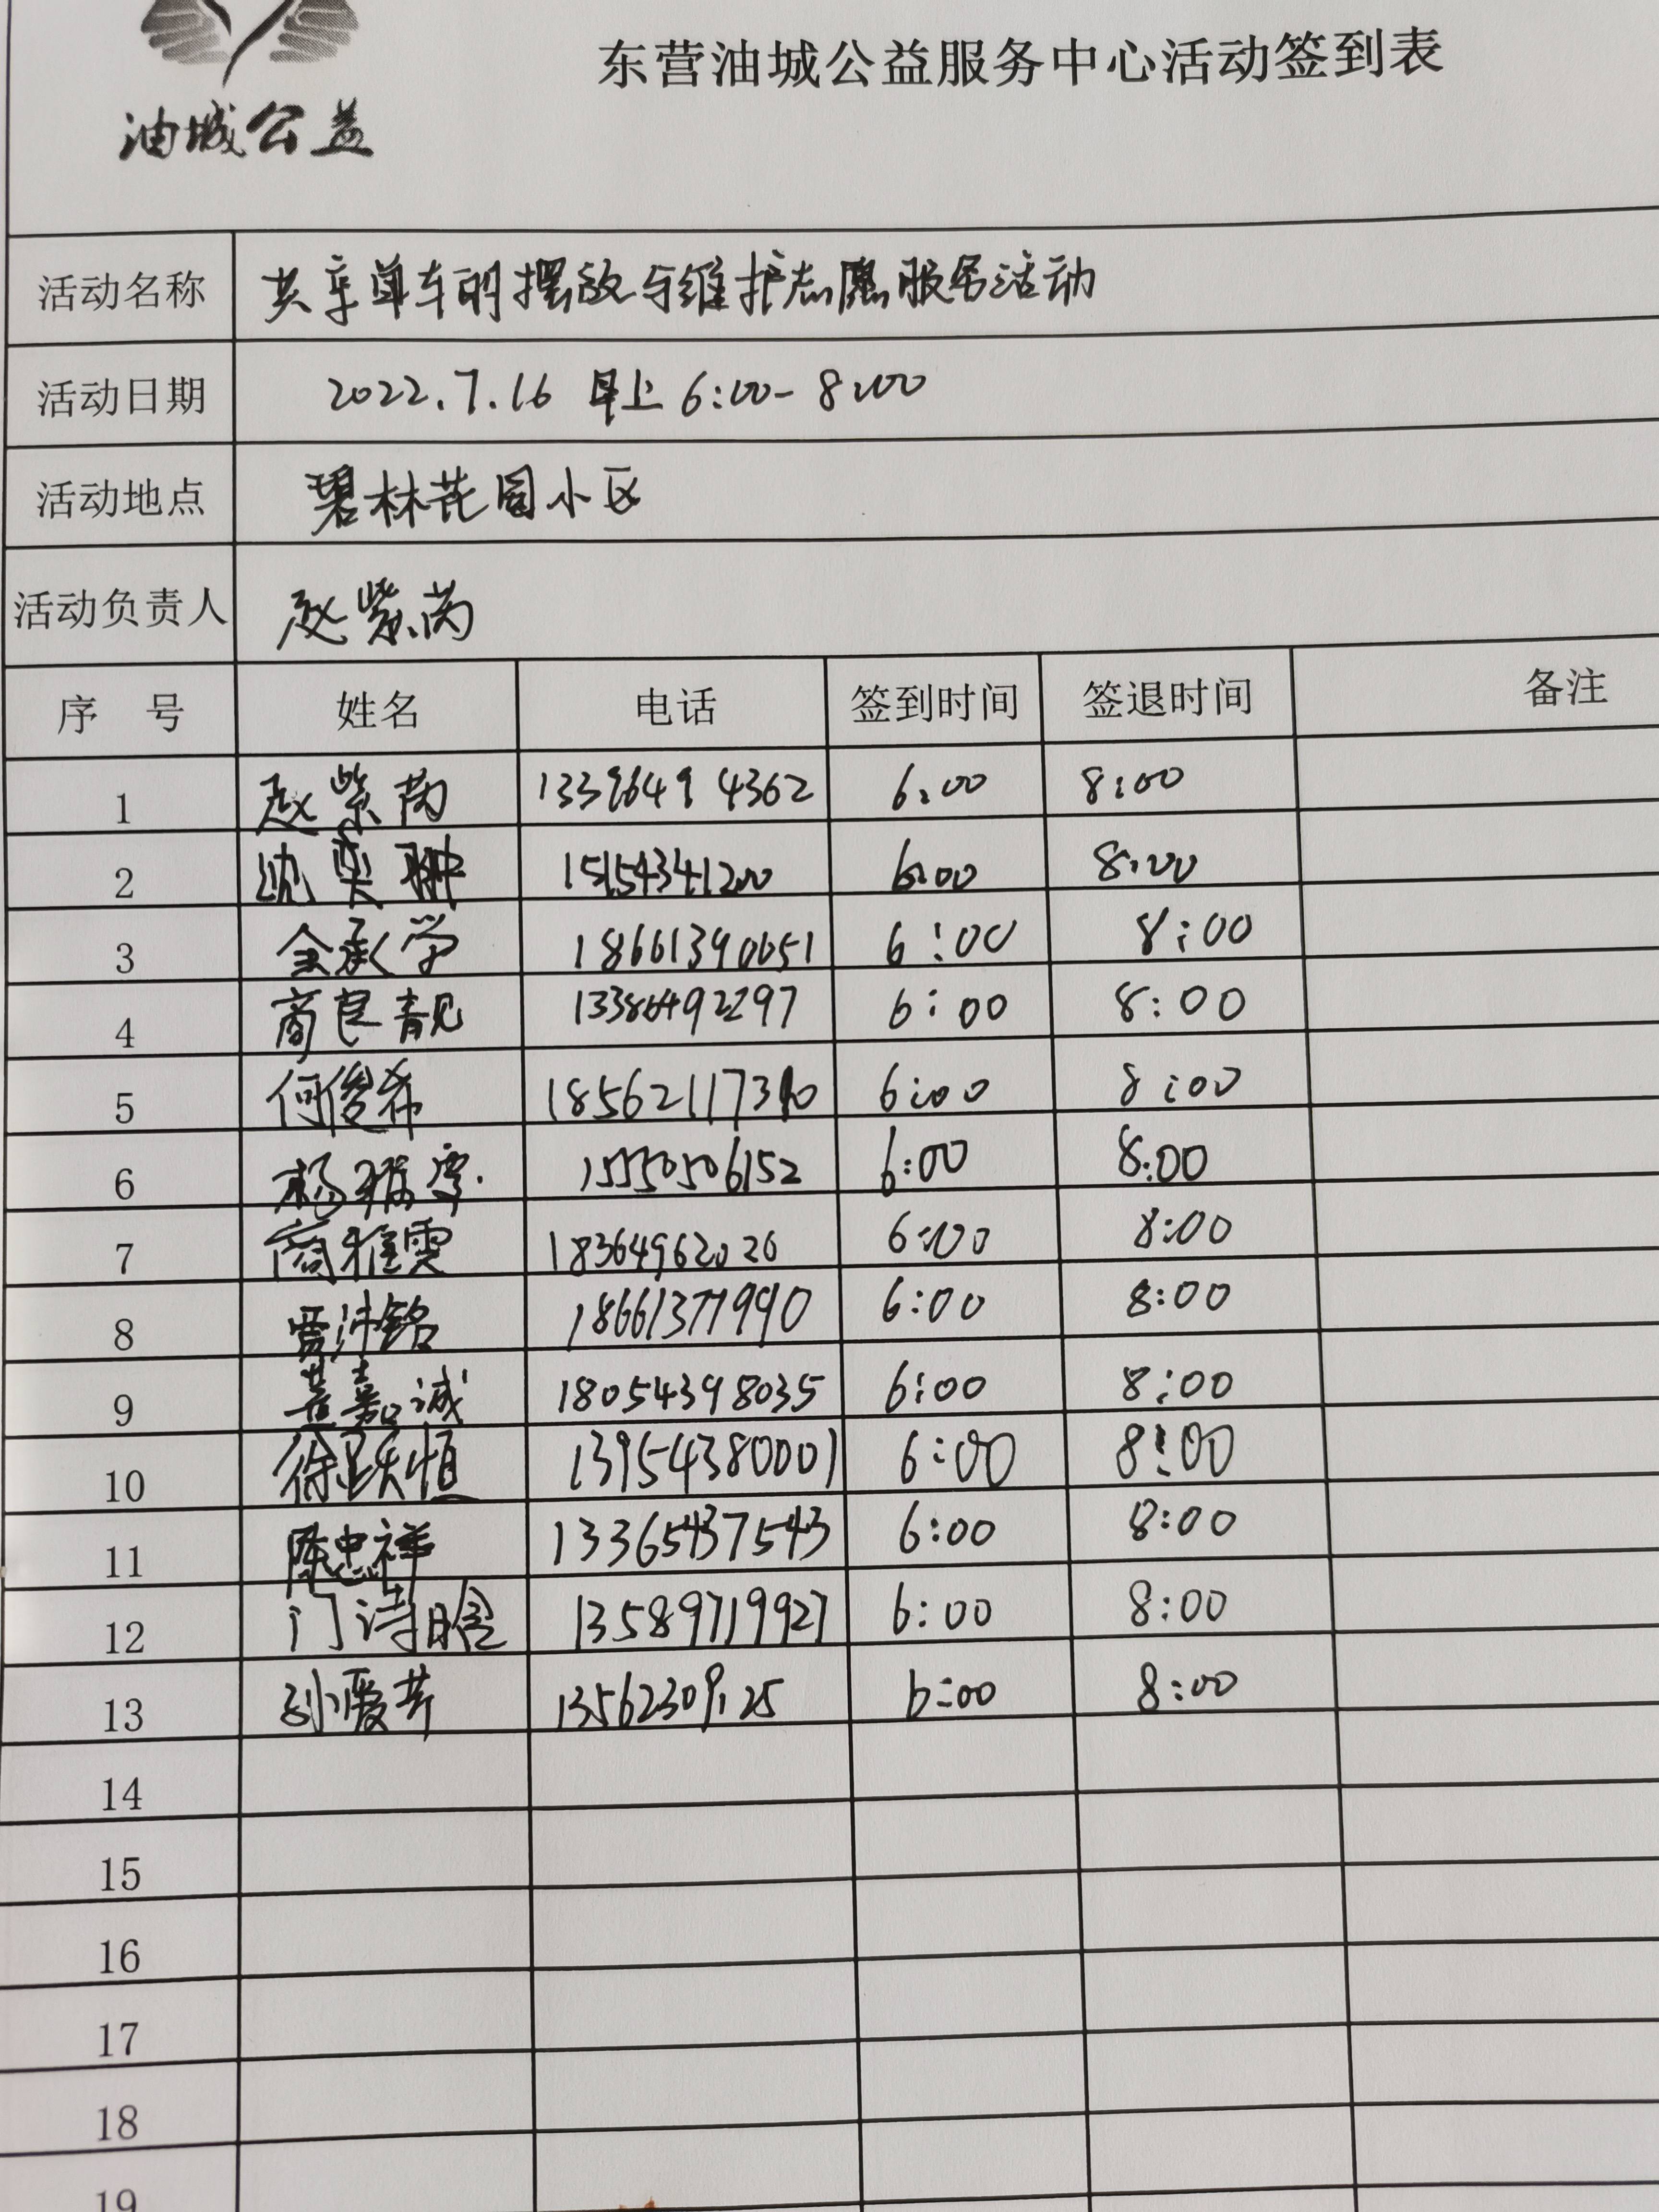 东营油城公益服务中心活动签到表
油城公益
活动名称 共享单车的摆放与维护志愿服务活动
活动日期 2022.7.16 早上 6:00-8:00
活动地点 碧林花园小区
活动负责人 赵紫芮
序号 姓名 电话 签到时间 签退时间 备注
1 赵紫芮 6:00 8:00
2 15154341200 6:00 8:00
3 18661390651 6:00 8:00
4 商良靓 13386492297 6:00 8:00
5 何俊希 6:00 8:00
6 15550506152 6:00 8:00
7 商雅雯 18364962026 6:00 8:00
8 贾沛铭 18661377990 6:00 8:00
9 嘉诚 18054398035 6:00 8:00
10 徐跃恒 13954380001 6:00 8:00
11 陈忠祥 13365437543 6:00 8:00
12 门诗晗 13589719927 6:00 8:00
13 孙爱芹 13562309125 6:00 8:00
14
15
16
17
18
19